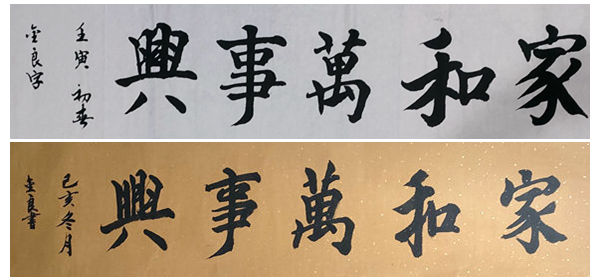 家和萬事興
壬寅初春
金良字
家和萬事興
己亥冬月
金良書